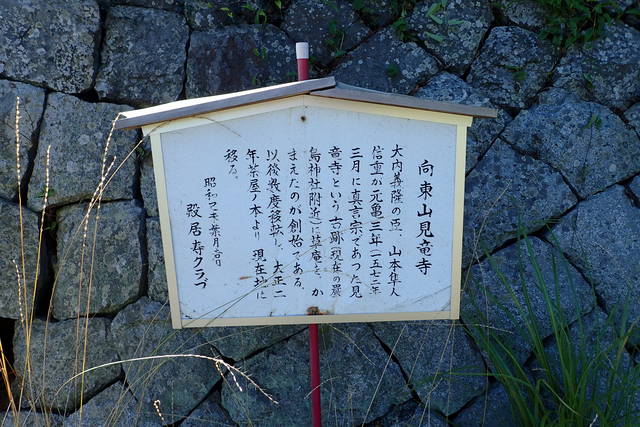 向東山見竜寺
大内義隆の臣 山本隼人
信重が元亀三年(一五七二年
三月に真言宗であった見
竜寺という古跡(現在の厳
島神社附近)に草庵を、か
まえたのが創始である。
以後幾度移転し、大正二
年茶屋ノ本より 現在地に
移る。
昭和 年 月 日
殿居寿クラブ